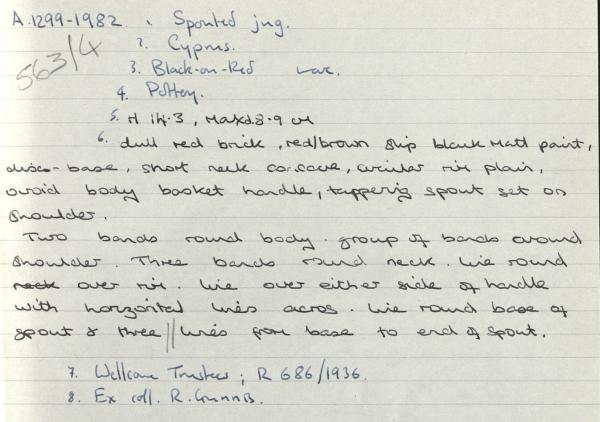 A.1299-1982. 1. Spouted jug.
563/4
2. Cyprus.
3. Black-on-Red ware.
4. Pottery.
5. H 14.3, Maxd 8.9 cm
6. dull red brick, red/brown slip blank Matt paint,
disco-base, short neck concave, circular rim plain,
ovoid body basket handle, tappering spout set on
shoulder.
Two bands round body. group of bands around
shoulder. Three bands round neck. line round
neck over rim. line over either side of handle
with horizontal lines acros. line round base of
spout & three || lines from base to end of spout.
7. Wellcome Trustees; R 686/1936.
8. Ex coll. R. Gunnis.